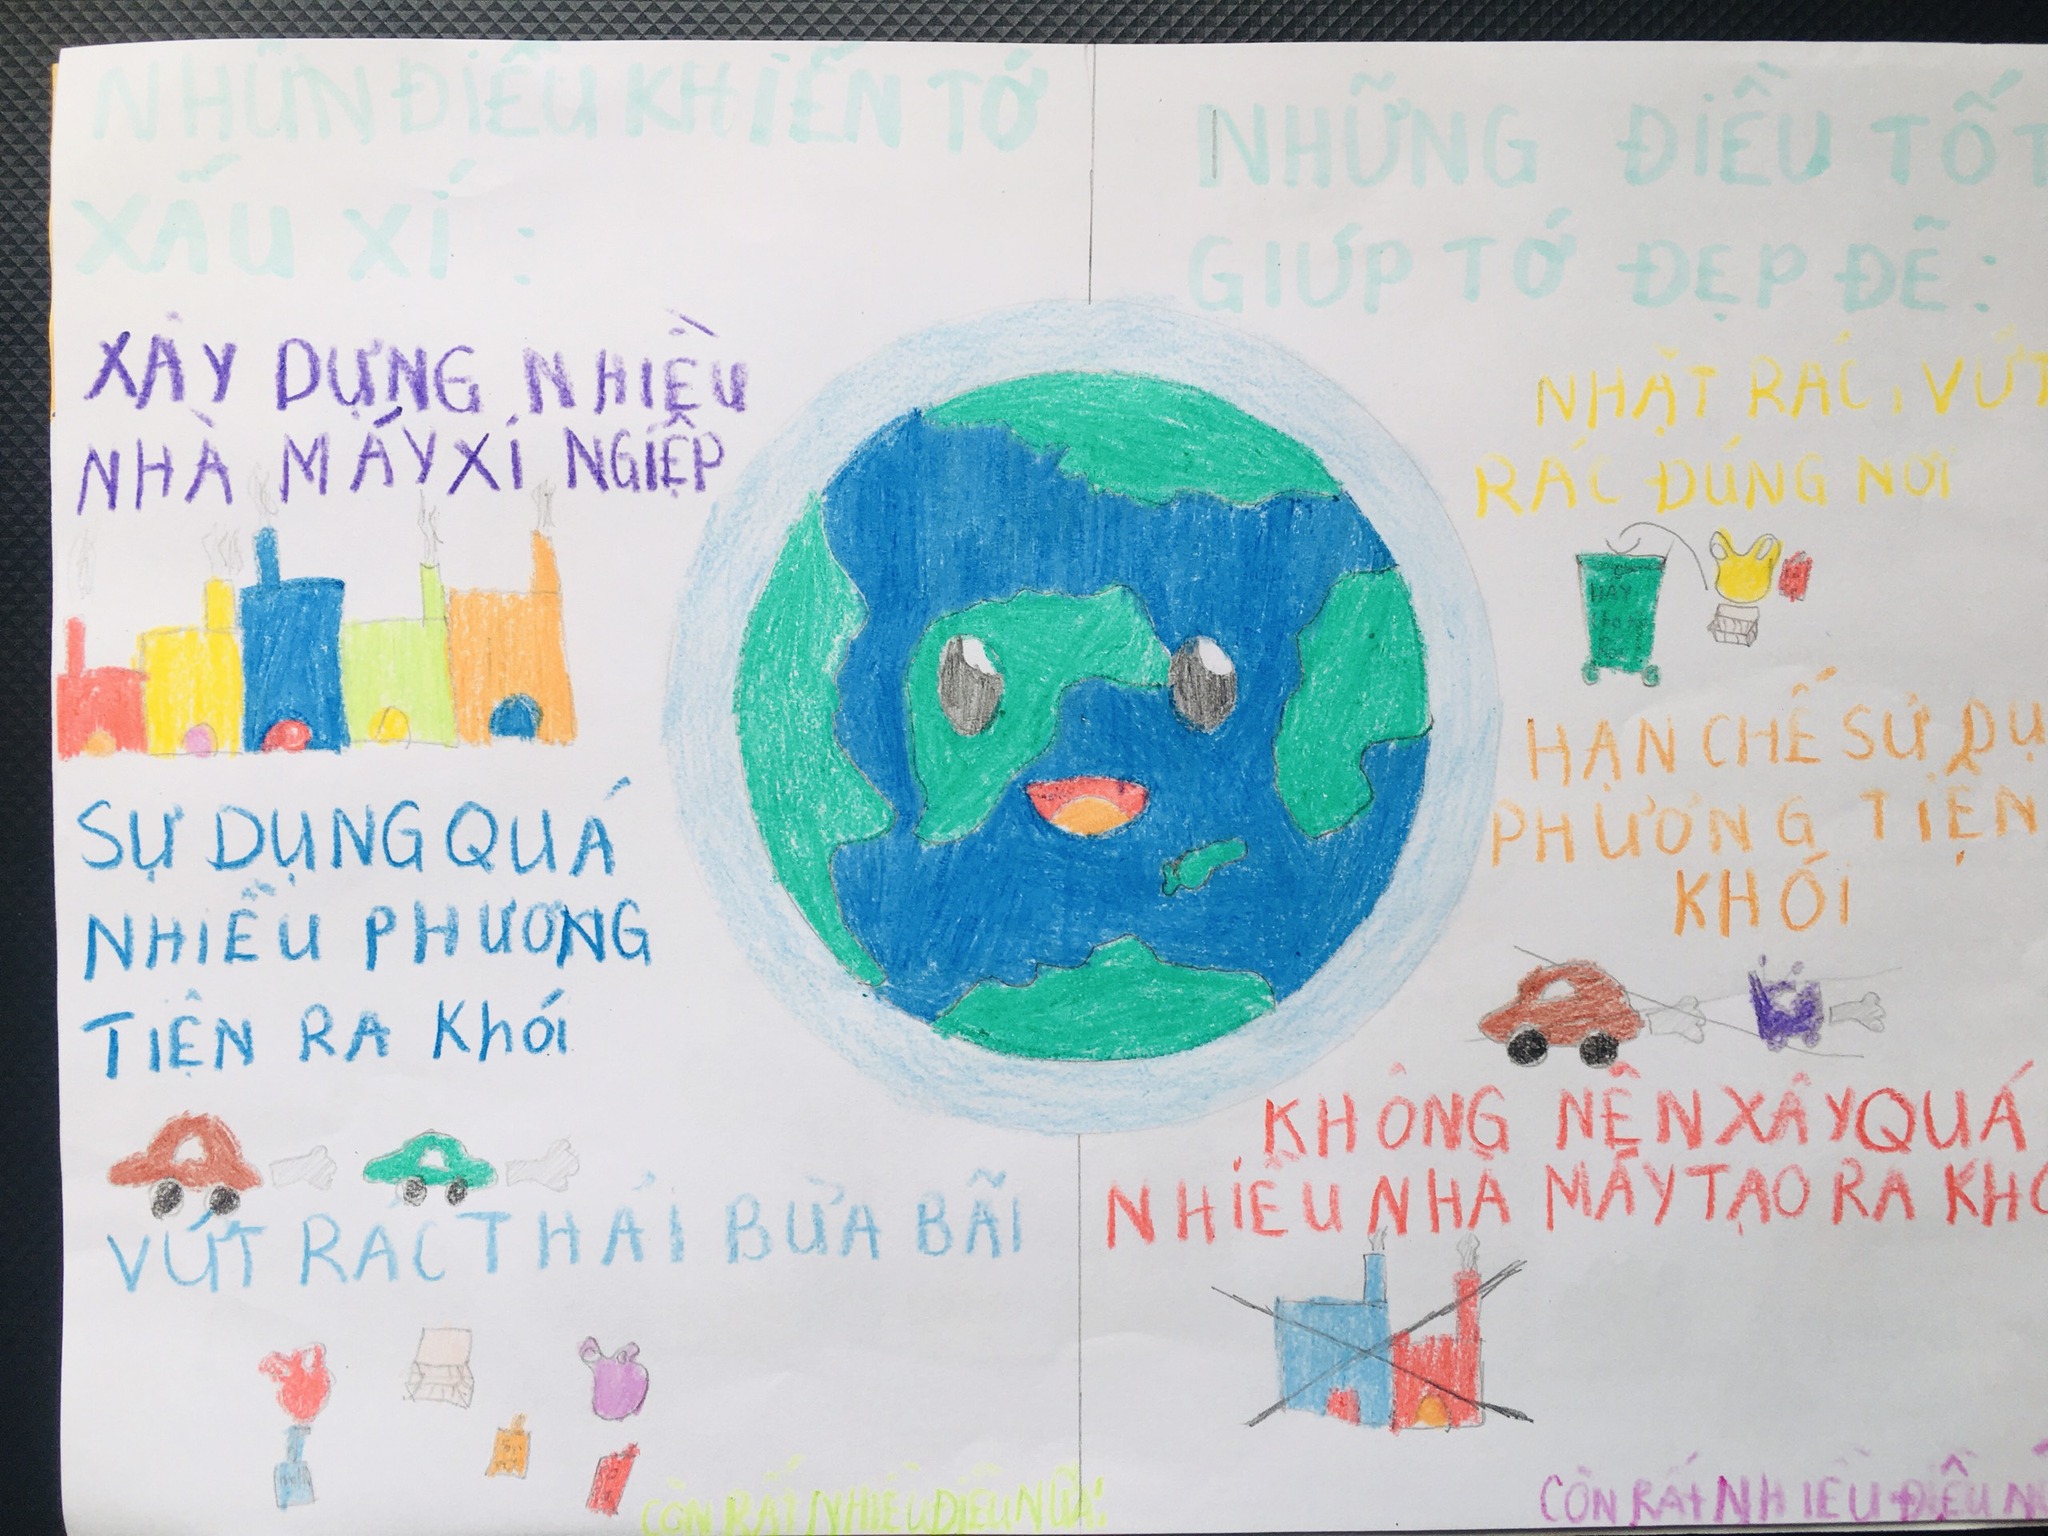 NHỮN ĐIỀU KHIẾN TỚ
XẤU XÍ :
XÂY DỰNG NHIỀU
NHÀ MÁY XÍ NGIỆP
SỰ DỤNG QUÁ
NHIỀU PHƯƠNG
TIỆN RA Khói
VỨT RÁC THẢI BỪA BÃI
CÒN RẤT NHIỀU ĐIỀU NỮA!
NHỮNG ĐIỀU TỐT
GIÚP TỚ ĐẸP ĐẼ :
NHẶT RÁC, VỨT
RÁC ĐÚNG NƠI
HẠN CHẾ SỬ DỤ
PHƯƠNG TIỆN
KHÓI
KHÔNG NÊN XÂY QUÁ
NHIỀU NHÀ MÁY TẠO RA KHÓ
CÒN RẤT NHIỀU ĐIỀU